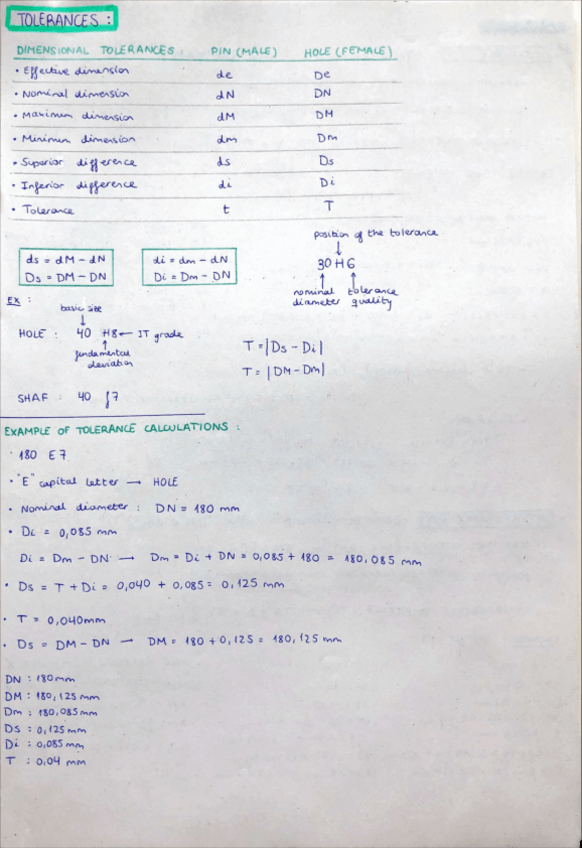 TOLERANCES :
DIMENSIONAL TOLERANCES : PIN (MALE) HOLE (FEMALE)
• Effective dimension de De
• Nominal dimension dN DN
• Maximum dimension dM DM
• Minimum dimension dm Dm
• Superior difference ds Ds
• Inferior difference di Di
• Tolerance t T
position of the tolerance
ds = dM - dN di = dm - dN 30 H 6
Ds = DM - DN Di = Dm - DN
nominal tolerance
diameter quality
EX :
basic size
HOLE : 40 H8 ← IT grade
fundamental
deviation
T = |Ds - Di|
T = |DM - Dm|
SHAF : 40 f7
EXAMPLE OF TOLERANCE CALCULATIONS :
· 180 E7
• "E" capital letter → HOLE
• Nominal diameter : DN = 180 mm
• Di = 0,085 mm
Di = Dm - DN → Dm = Di + DN = 0,085 + 180 = 180,085 mm
• Ds = T + Di = 0,040 + 0,085 = 0,125 mm
• T = 0,040mm
• Ds = DM - DN → DM = 180 + 0,125 = 180,125 mm
DN : 180mm
DM : 180,125 mm
Dm : 180,085mm
Ds : 0,125 mm
Di : 0,085mm
T : 0,04 mm